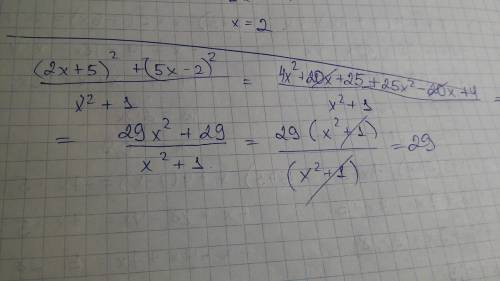 x = 2
(2x+5)² + (5x-2)² / x² + 1 = 4x² + 20x + 25 + 25x² - 20x + 4 / x² + 1 =
= 29x² + 29 / x² + 1 = 29 (x² + 1) / (x² + 1) = 29